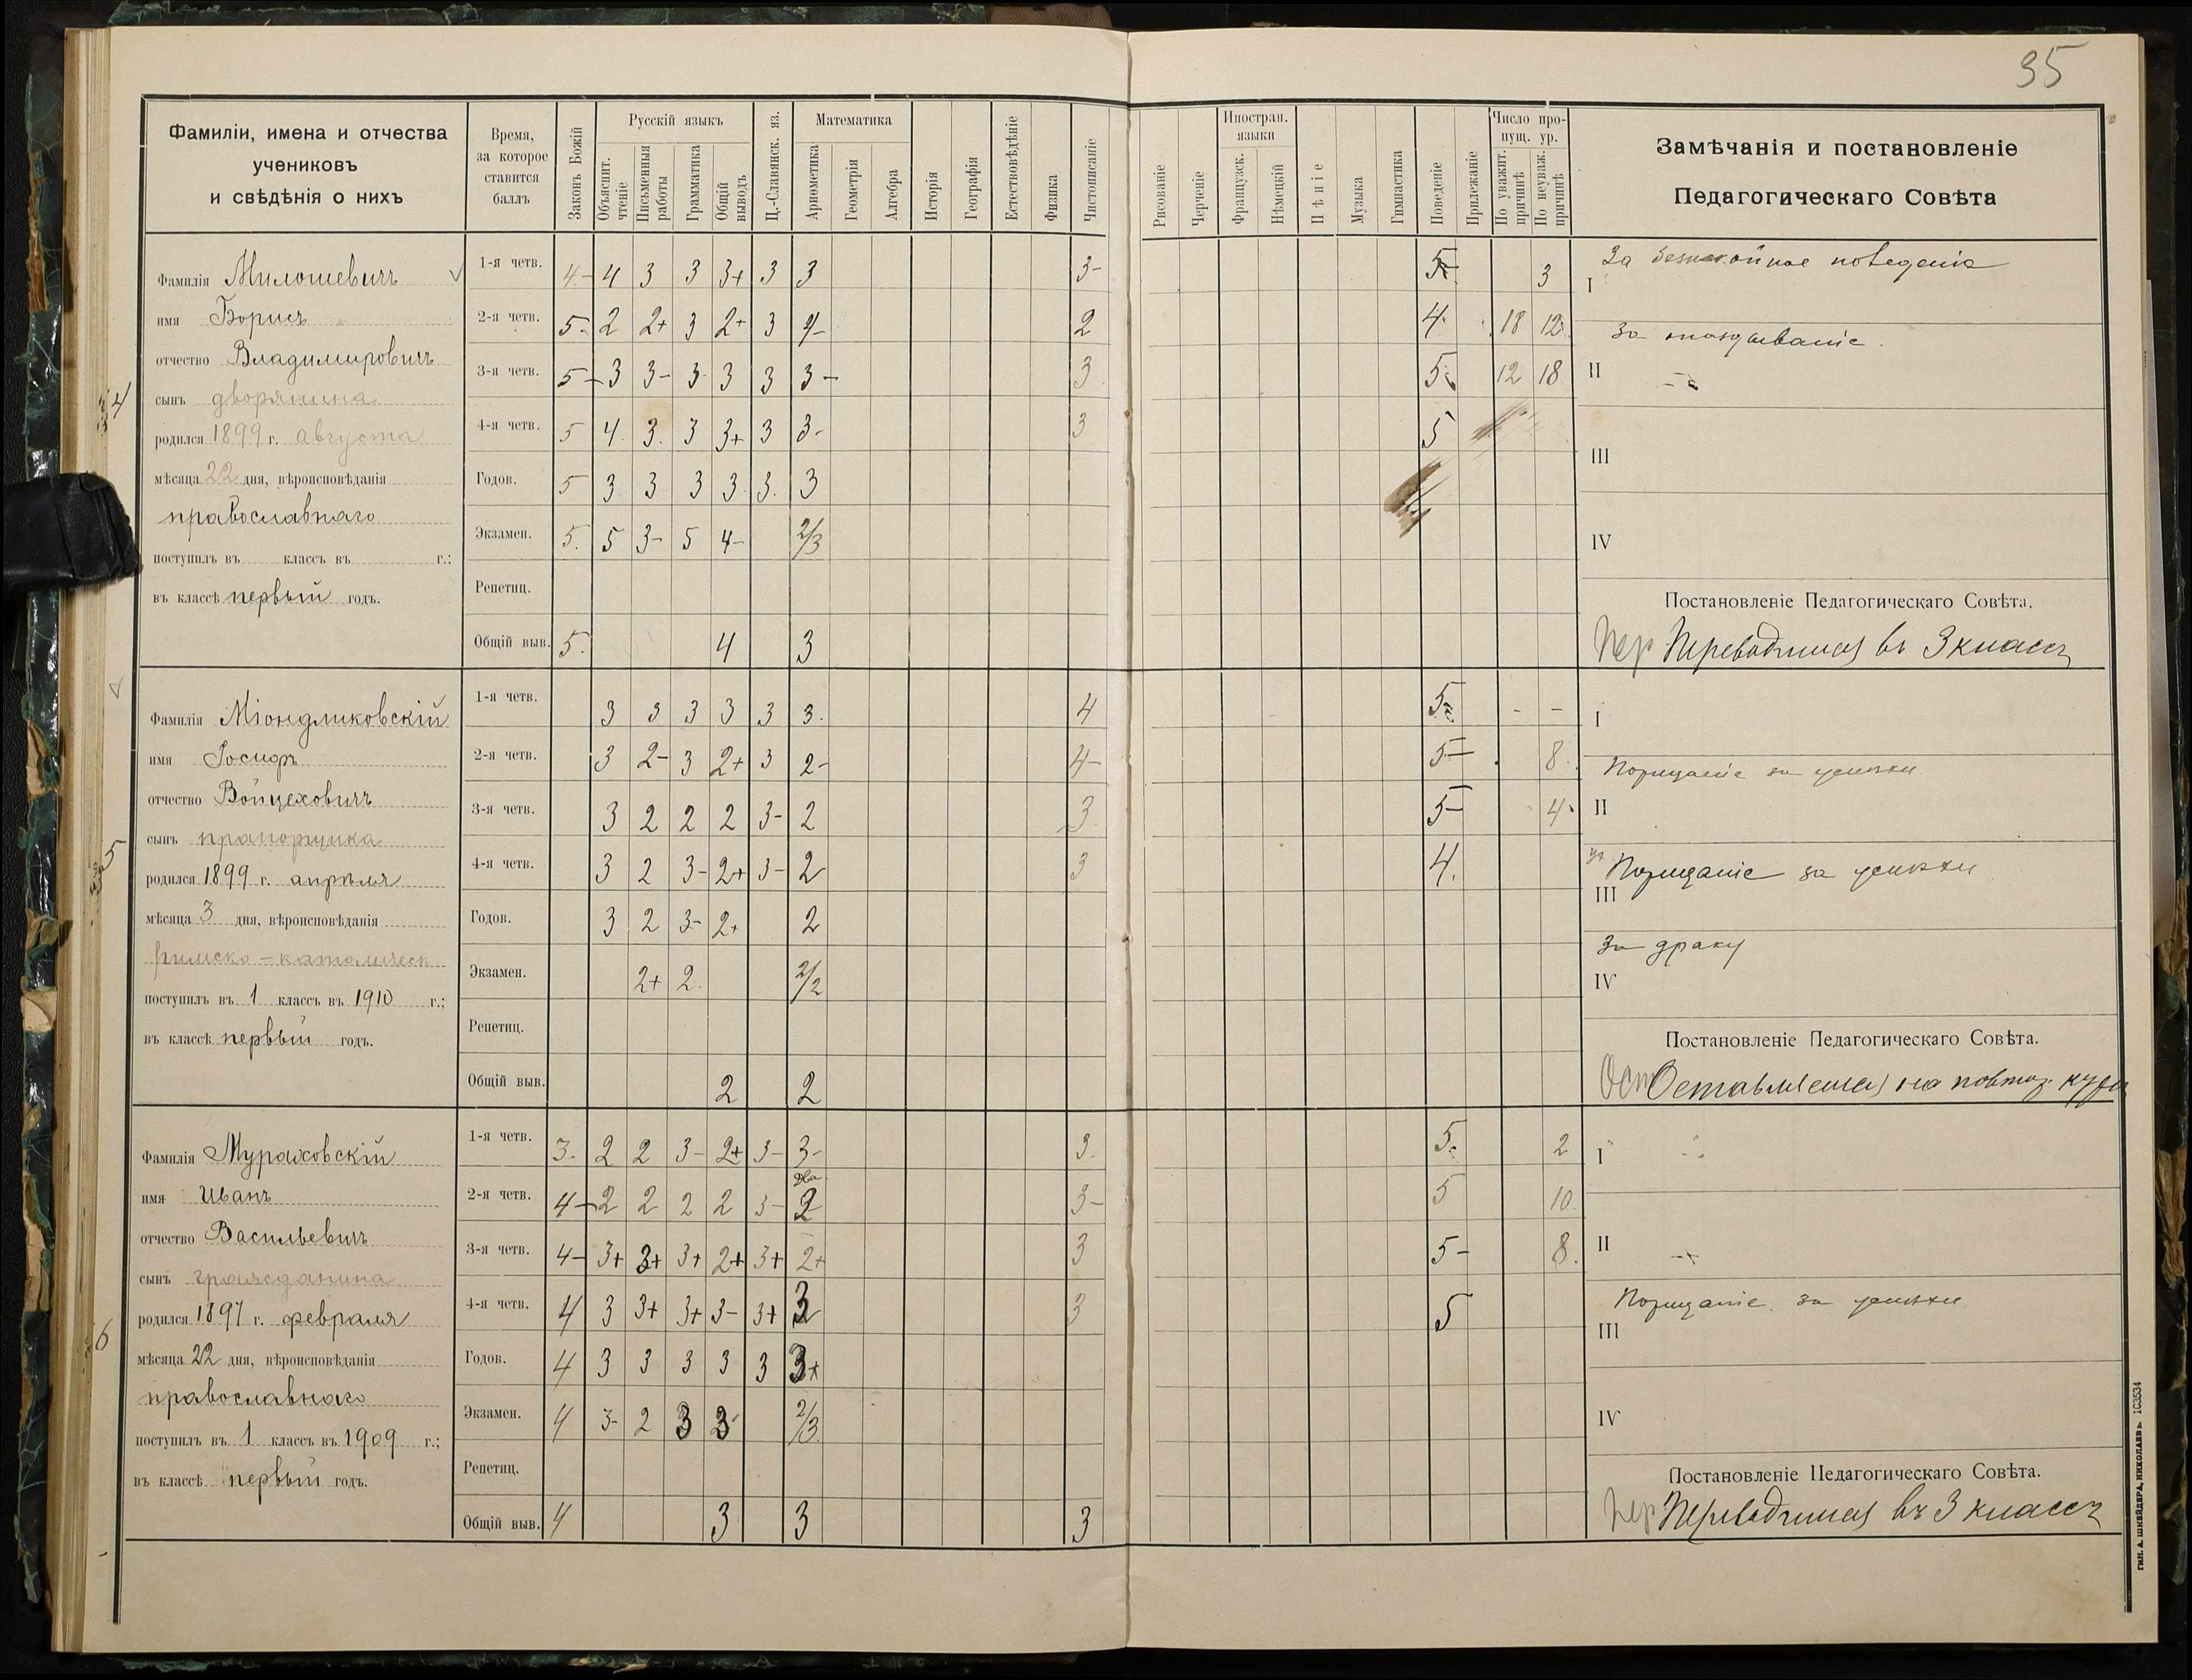 95
Фамиліи, имена и отчества
учениковъ
и свѣдѣнія о нихъ
Время,
за которое
ставится
баллъ
Законъ Божій
Русскій языкъ
Объяснит. чтеніе
Письменныя работы
Грамматика
Общій выводъ
Ц.-Славянск. яз.
Математика
Ариѳметика
Геометрія
Алгебра
Исторія
Географія
Естествовѣдѣніе
Физика
Чистописаніе
Рисованіе
Черченіе
Иностран. языки
Французск.
Нѣмецкій
Пѣніе
Музыка
Гимнастика
Поведеніе
Прилежаніе
Число пропущ. ур.
По уважит. причинѣ
По неуваж. причинѣ
Замѣчанія и постановленіе
Педагогическаго Совѣта
4
Фамилія Милошевичъ
имя Борисъ
отчество Владимировичъ
сынъ дворянина
родился 1899 г. августа
мѣсяца 22 дня, вѣроисповѣданія
православнаго
поступилъ въ классъ въ г.:
въ классѣ первый годъ.
1-я четв. 4- 4 3 3 3+ 3 3 3- 5- 3
2-я четв. 5- 2 2+ 3 2+ 3 2- 2 4 18 12
3-я четв. 5- 3 3- 3- 3 3 3- 3 5 12 18
4-я четв. 5 4 3 3 3+ 3 3- 3 5
Годов. 5 3 3 3 3 3 3
Экзамен. 5 5 3- 5 4- 2/3
Репетиц.
Общій выв. 5 4 3
За безпокойное поведеніе
I
За опаздываніе.
II
III
IV
Постановленіе Педагогическаго Совѣта.
Пер Переводится въ 3 классъ
5
Фамилія Міондликовскій
имя Іосифъ
отчество Войцеховичъ
сынъ прапорщика
родился 1899 г. апрѣля
мѣсяца 3 дня, вѣроисповѣданія
римско-католическ
поступилъ въ 1 классъ въ 1910 г.;
въ классѣ первый годъ.
1-я четв. 3 3 3 3 3 3 4 5- - -
2-я четв. 3 2- 3 2+ 3 2- 4- 5- 8
3-я четв. 3 2 2 2 3- 2 3 5- 4
4-я четв. 3 2 3- 2+ 3- 2 3 4
Годов. 3 2 3- 2+ 2
Экзамен. 2+ 2 2/2
Репетиц.
Общій выв. 2 2
I
Порицаніе за успѣхи
II
Порицаніе за успѣхи
III
За драку
IV
Постановленіе Педагогическаго Совѣта.
Ост Оставляется на повтор. курс
6
Фамилія Мураховскій
имя Иванъ
отчество Васильевичъ
сынъ гражданина
родился 1897 г. февраля
мѣсяца 22 дня, вѣроисповѣданія
православнаго
поступилъ въ 1 классъ въ 1909 г.;
въ классѣ первый годъ.
1-я четв. 3- 2 2 3- 2+ 3- 3- 3 5- 2
Два
2-я четв. 4- 2 2 2 2 3- 2 3- 5 10
3-я четв. 4- 3+ 3+ 3+ 2+ 3+ 2+ 3 5- 8
4-я четв. 4 3 3+ 3+ 3- 3+ 3 3 5
Годов. 4 3 3 3 3 3 3+
Экзамен. 4 3- 2 3 3- 2/3
Репетиц.
Общій выв. 4 3 3 3
I
II
Порицаніе за успѣхи
III
IV
Постановленіе Педагогическаго Совѣта.
Пер Переводится въ 3 классъ
ТИП. А. ШНЕЙДЕРА, НИКОЛАЕВЪ 103534